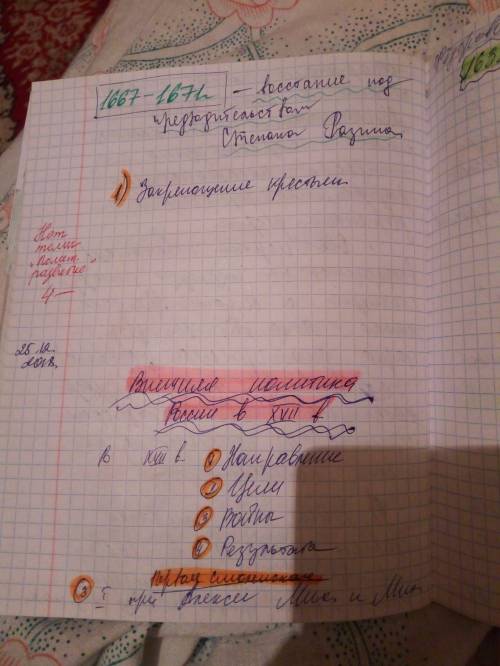 1667-1671
— восстание под
предводительством
Степана Разина
1) Закрепощение крестьян
Нет
темы
"Полит.
развитие"
4-
25.12.
2018.
Внешняя политика
России в XVII в
В XVII в. 1 Направление
2 Цели
3 Войны
4 Результата
3 I при Алексее Мих и Мих